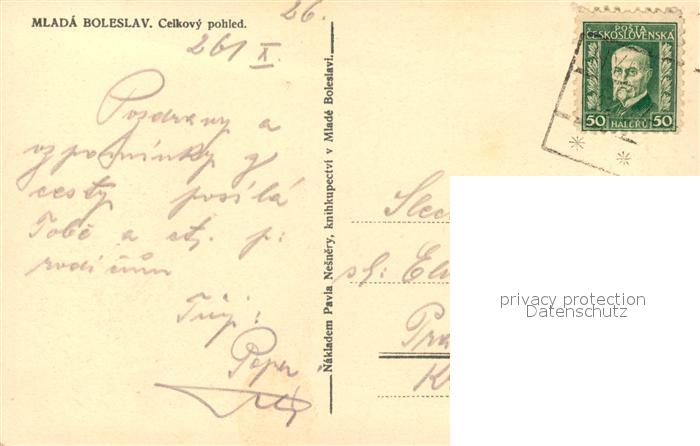 MLADÁ BOLESLAV. Celkový pohled.
26.
26/ X.
Pozdravy a
vzpomínky z
cesty posílá
Tobě a ct. p:
rodičům
Tvůj:
Pepa
Nákladem Pavla Nešněry, knihkupectví v Mladé Boleslavi.
POŠTA
ČESKOSLOVENSKÁ
50 HALÉŘŮ 50
Slec
sl:
Pra
privacy protection
Datenschutz